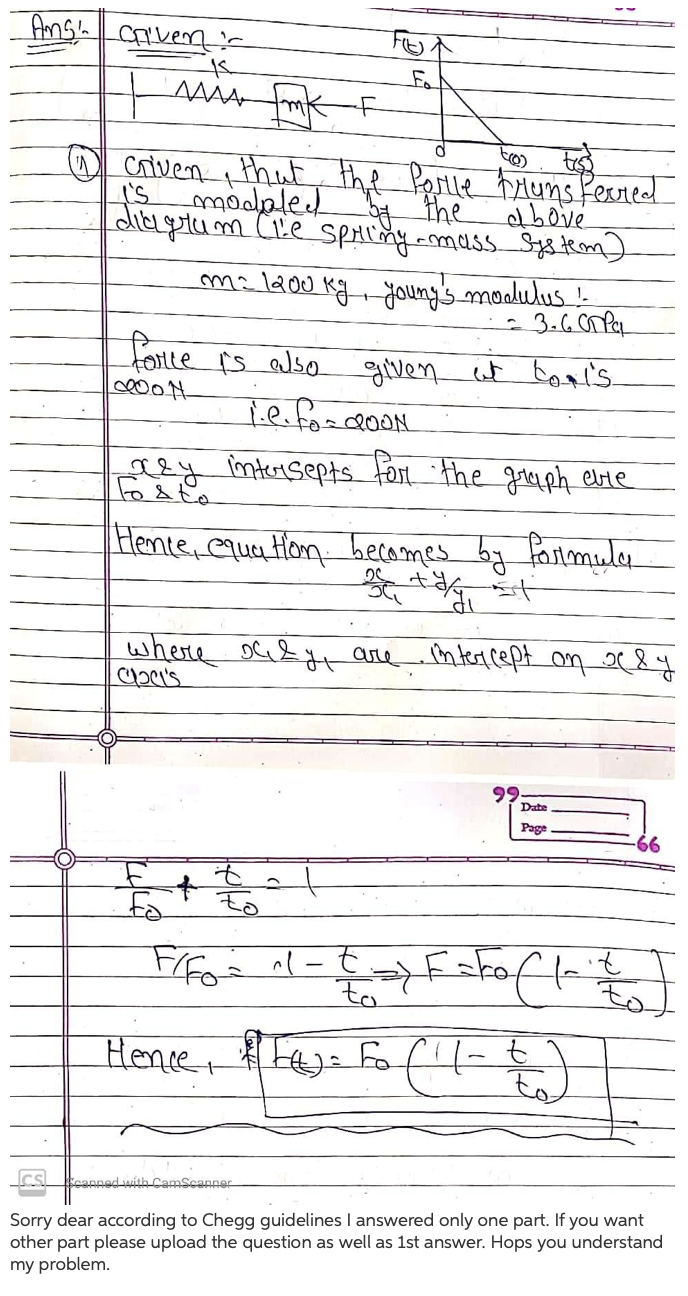 Ans:- Given :-
F(t)
F₀
K
m F
0 t(0) t(s)
(1) Given, that the force transferred
is modaled by the above
diagram (i.e spring-mass system)
m = 1200 kg, young's modulus :-
= 3.6 GPa
force is also given at to is
200 N
i.e. fo = 200N
x & y intersepts for the graph are
Fo & to
Hence, equation becomes by formula
x/x₁ + y/y₁ = 1
where x₁ & y₁ are intercept on x & y
axis
Date
Page
F/Fo + t/to = 1
F/Fo = 1 - t/to => F = Fo (1 - t/to)
Hence, F(t) = Fo (1 - t/to)
CS Scanned with CamScanner
Sorry dear according to Chegg guidelines I answered only one part. If you want
other part please upload the question as well as 1st answer. Hops you understand
my problem.